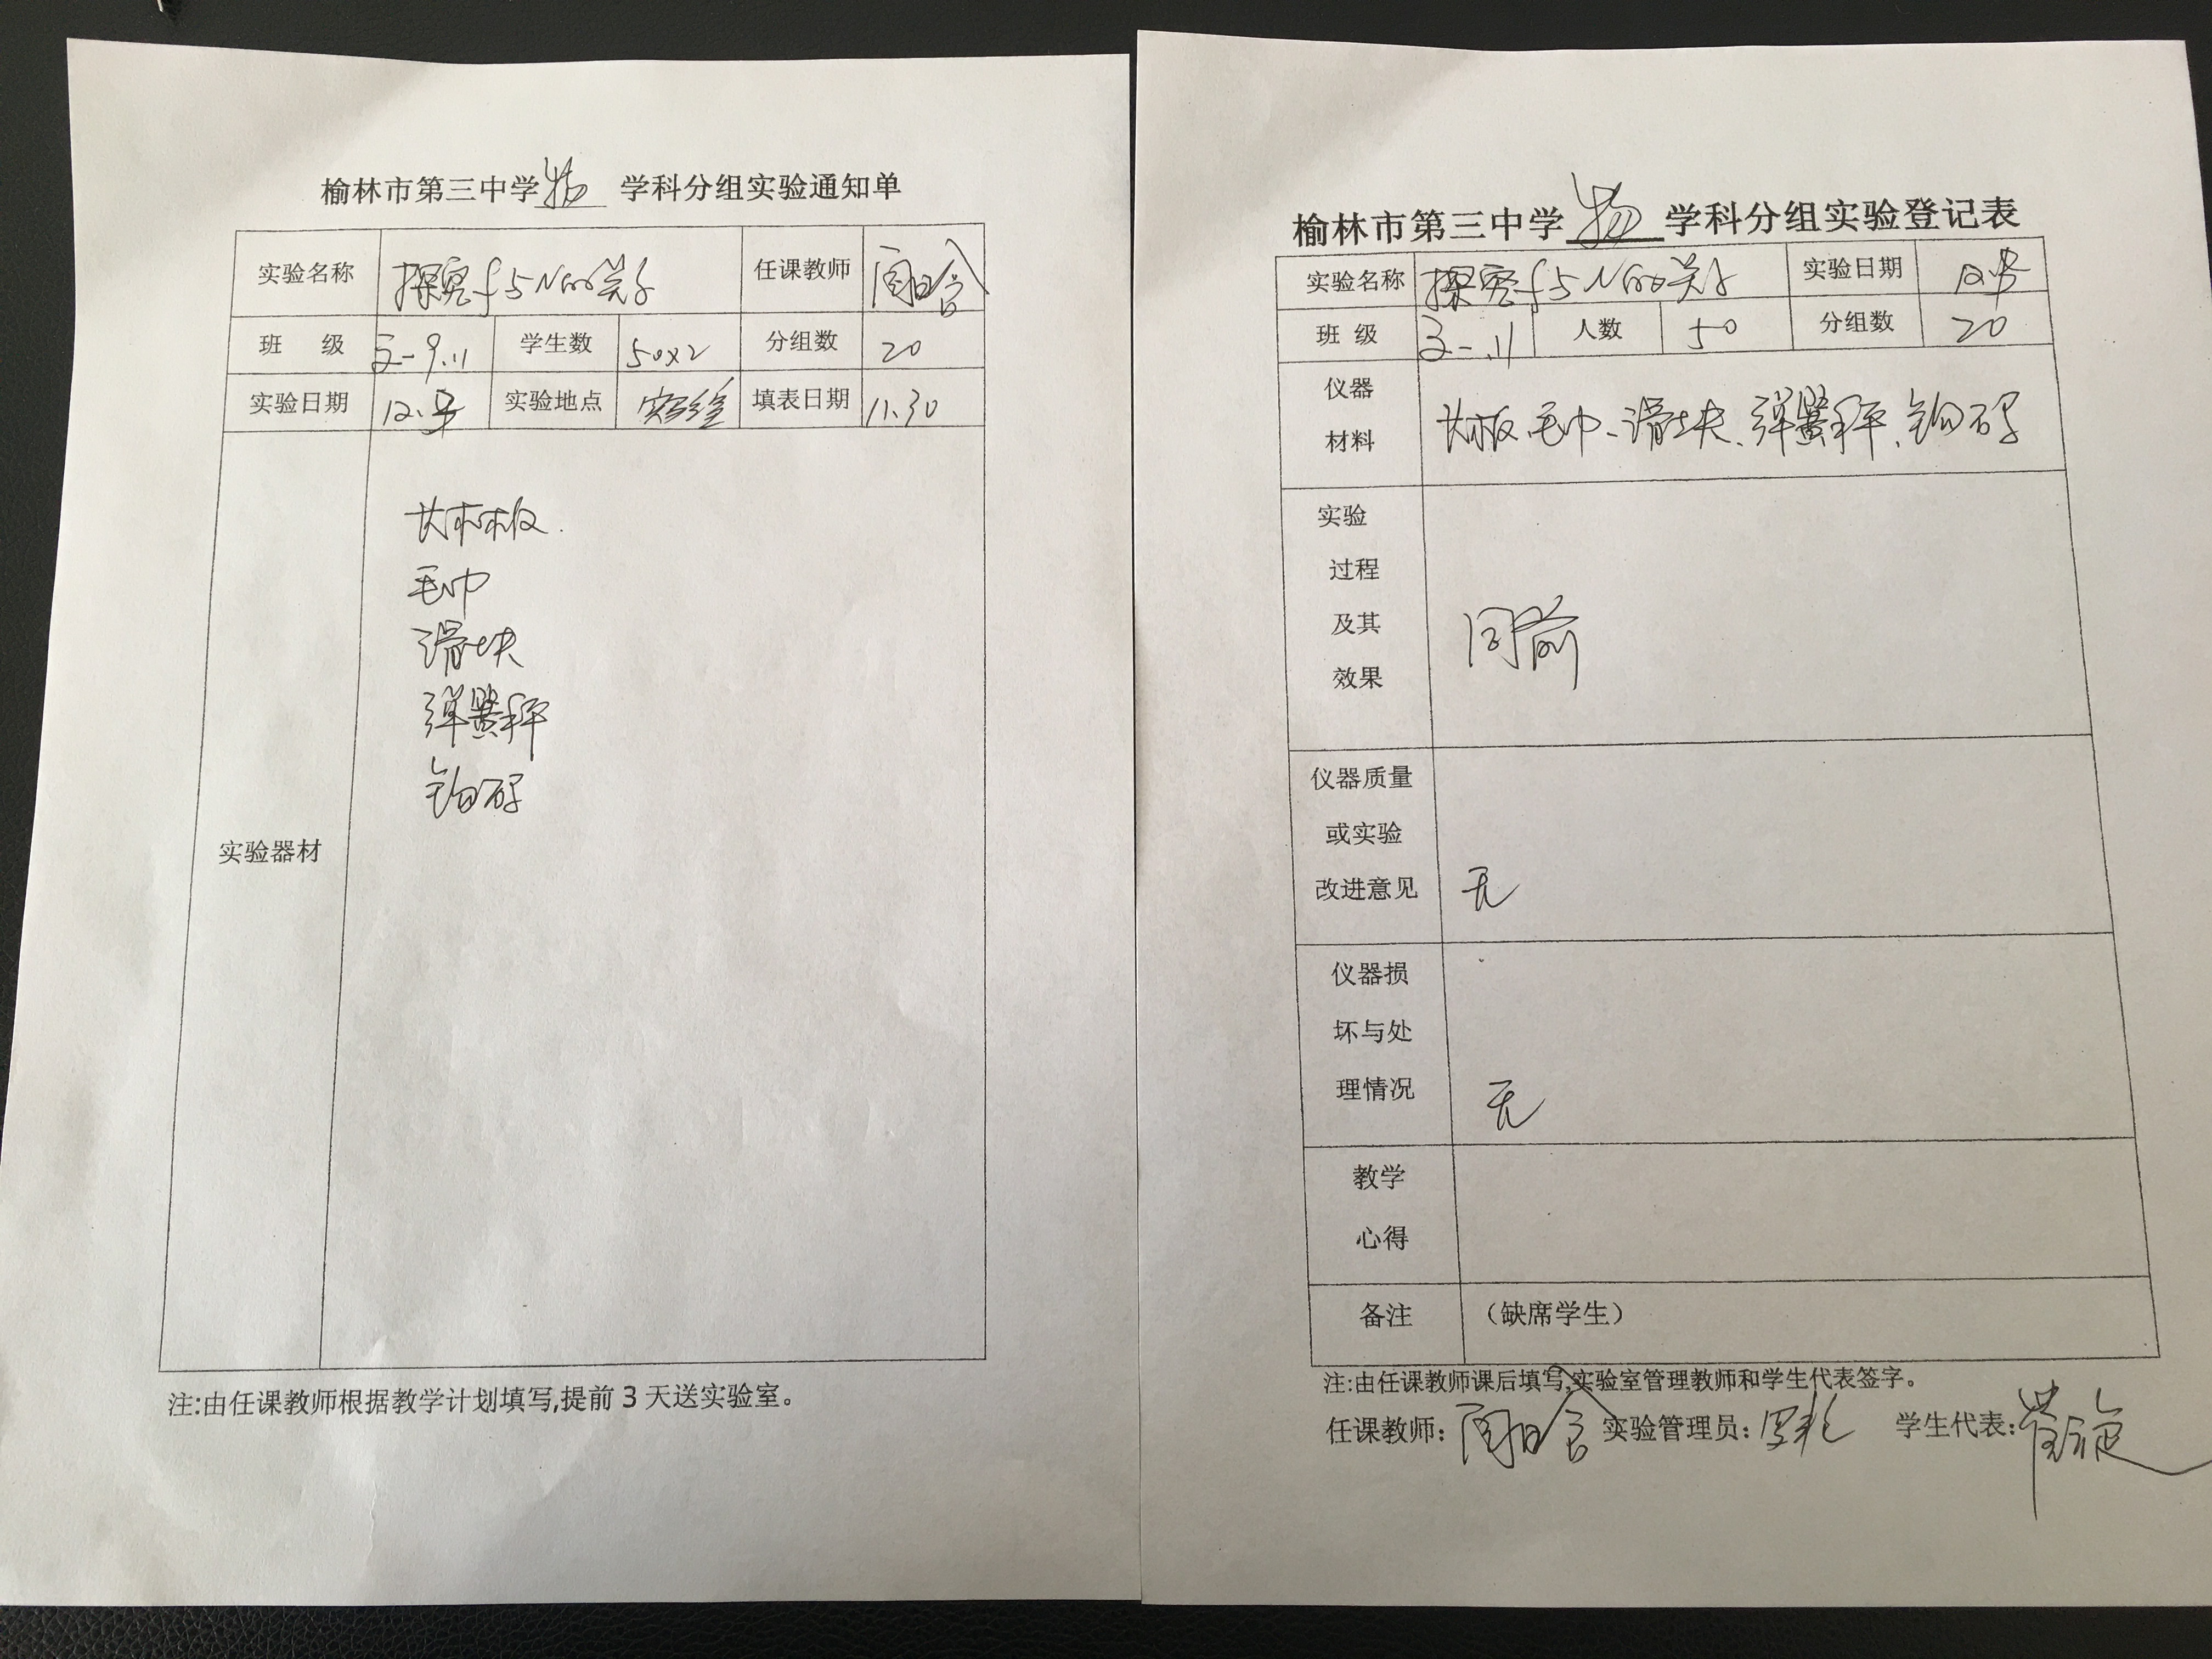 榆林市第三中学 物 学科分组实验通知单
实验名称 探究f与N的关系 任课教师
班 级 高一9.11 学生数 50x2 分组数 20
实验日期 实验地点 实验室 填表日期 11.30
实验器材
长木板
毛巾
滑块
弹簧秤
钩码
注:由任课教师根据教学计划填写,提前3天送实验室。
榆林市第三中学 物 学科分组实验登记表
实验名称 探究f与N的关系 实验日期
班 级 高一.11 人数 50 分组数 20
仪器
材料
长木板、毛巾、滑块、弹簧秤、钩码
实验
过程
及其
效果
同前
仪器质量
或实验
改进意见
无
仪器损
坏与处
理情况
无
教学
心得
备注 （缺席学生）
注:由任课教师课后填写,实验室管理教师和学生代表签字。
任课教师： 实验管理员： 学生代表：